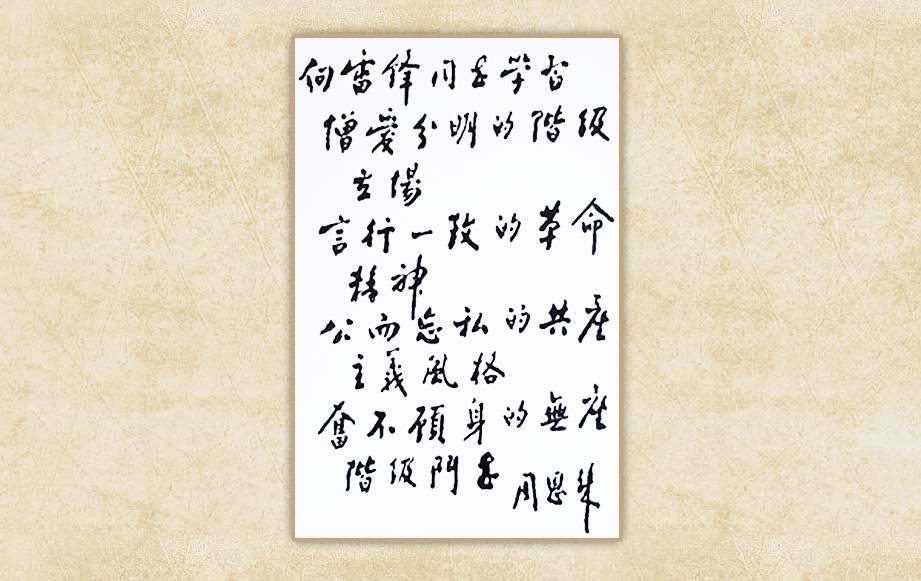 向雷锋同志学習
憎愛分明的階级
立場
言行一致的革命
精神
公而忘私的共産
主義風格
奮不顧身的無産
階级鬥志
周恩來